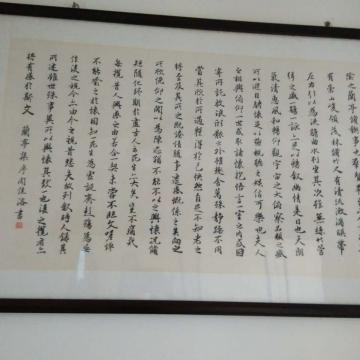 陰之蘭亭修禊事也
有崇山峻領茂林脩竹又有清流激湍暎帶
左右引以為流觴曲水列坐其次雖無絲竹管
弦之盛一觴一詠亦足以暢敘幽情是日也天朗
氣清惠風和暢仰觀宇宙之大俯察品類之盛
所以遊目騁懷足以極視聽之娛信可樂也夫人
之相與俯仰一世或取諸懷抱悟言一室之內或因
寄所託放浪形骸之外雖趣舍萬殊靜躁不同
當其欣於所遇暫得於己快然自足不知老之
將至及其所之既倦情隨事遷感慨係之矣向之
所欣俛仰之間以為陳迹猶不能不以之興懷況脩
短隨化終期於盡古人云死生亦大矣豈不痛哉
每攬昔人興感之由若合一契未嘗不臨文嗟悼
不能喻之於懷固知一死生為虛誕齊彭殤為妄
作後之視今亦由今之視昔悲夫故列敘時人錄其
所述雖世殊事異所以興懷其致一也後之攬者亦
將有感於斯文 蘭亭集序 周洛書